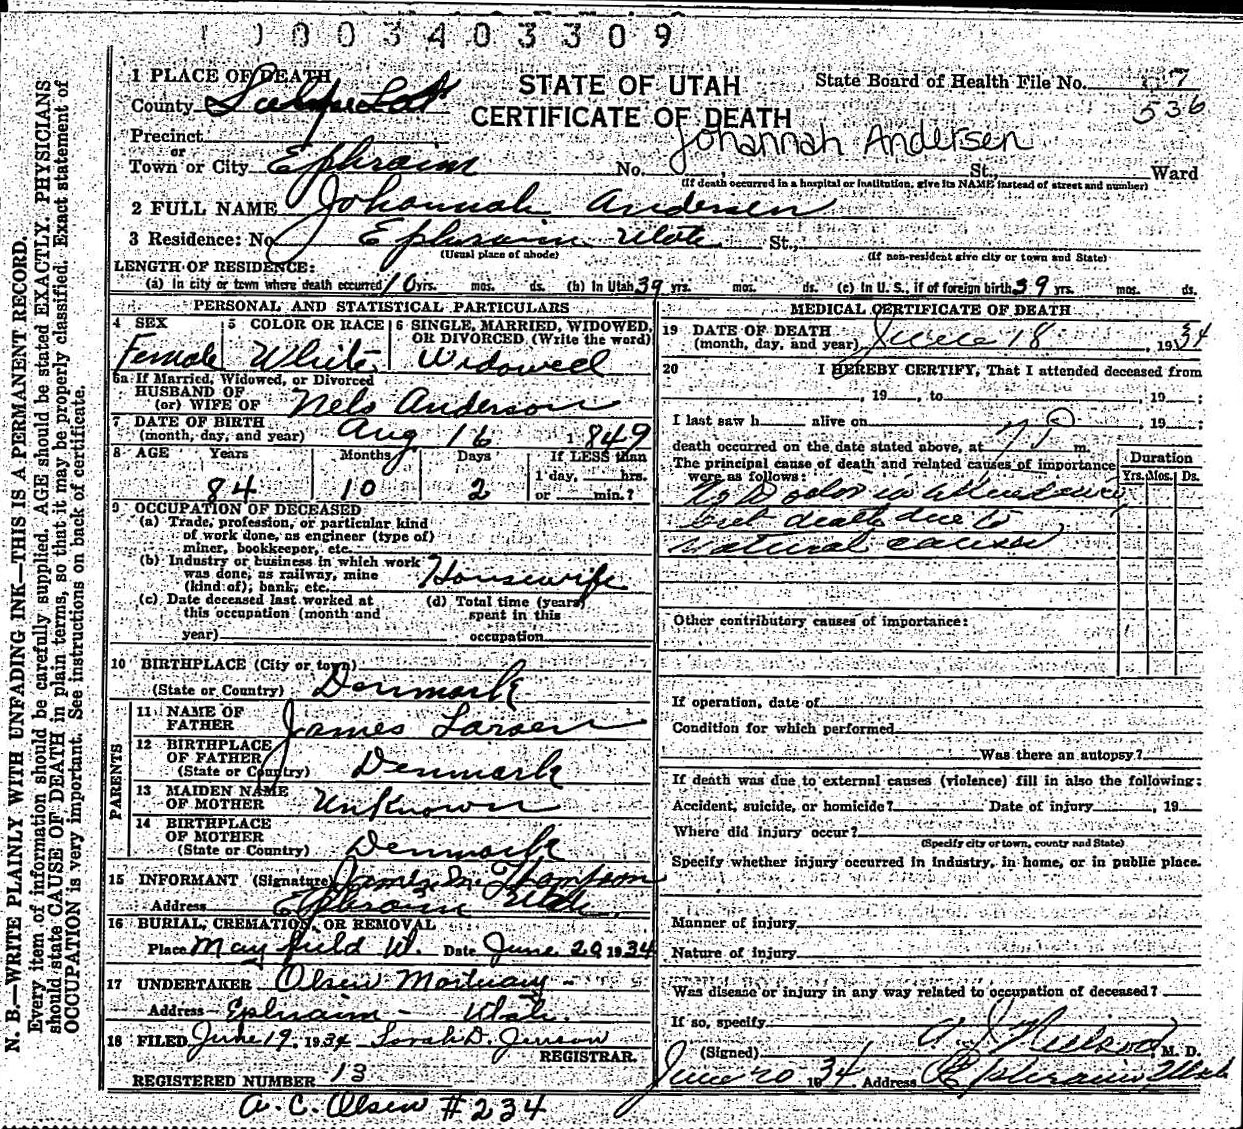 1 0 0 0 3 4 0 3 3 0 9
STATE OF UTAH
CERTIFICATE OF DEATH
State Board of Health File No. 7
536
Johannah Andersen
1 PLACE OF DEATH
County
Precinct
or
Town or City Ephraim No. St., Ward
(If death occurred in a hospital or institution, give its NAME instead of street and number)
2 FULL NAME Johannah Andersen
3 Residence: No. Ephraim Utah St.,
(Usual place of abode) (If non-resident give city or town and State)
LENGTH OF RESIDENCE:
(a) In city or town where death occurred 10 yrs. mos. ds. (b) In Utah 39 yrs. mos. ds. (c) In U. S., if of foreign birth 39 yrs. mos. ds.
PERSONAL AND STATISTICAL PARTICULARS
4 SEX Female
5 COLOR OR RACE White
6 SINGLE, MARRIED, WIDOWED, OR DIVORCED (Write the word) Widowed
6a If Married, Widowed, or Divorced
HUSBAND OF
(or) WIFE OF Nels Anderson
7 DATE OF BIRTH
(month, day, and year) Aug 16 1849
8 AGE Years Months Days If LESS than
1 day, hrs.
84 10 2 or min.?
9 OCCUPATION OF DECEASED
(a) Trade, profession, or particular kind
of work done, as engineer (type of)
miner, bookkeeper, etc.
(b) Industry or business in which work
was done, as railway, mine
(kind of), bank, etc. Housewife
(c) Date deceased last worked at
this occupation (month and
year)
(d) Total time (years)
spent in this
occupation
10 BIRTHPLACE (City or town)
(State or Country) Denmark
PARENTS
11 NAME OF
FATHER James Larsen
12 BIRTHPLACE
OF FATHER
(State or Country) Denmark
13 MAIDEN NAME
OF MOTHER Unknown
14 BIRTHPLACE
OF MOTHER
(State or Country) Denmark
15 INFORMANT (Signature) James M. Thompson
Address Ephraim Utah.
16 BURIAL, CREMATION, OR REMOVAL
Place Mayfield U. Date June 20 1934
17 UNDERTAKER Olsen Mortuary -
Address - Ephraim - Utah.
18 FILED June 19, 1934 Sarah D. Jenson
REGISTRAR.
REGISTERED NUMBER 13
A. C. Olsen #234
MEDICAL CERTIFICATE OF DEATH
19 DATE OF DEATH
(month, day, and year) June 18, 1934
20 I HEREBY CERTIFY, That I attended deceased from
, 19 , to , 19 ;
I last saw h alive on , 19 ;
death occurred on the date stated above, at 7 P m.
The principal cause of death and related causes of importance
were as follows:
Duration
Yrs. Mos. Ds.
No Doctor in attendance
but death due to
natural causes
Other contributory causes of importance:
If operation, date of
Condition for which performed
Was there an autopsy?
If death was due to external causes (violence) fill in also the following:
Accident, suicide, or homicide? Date of injury , 19
Where did injury occur?
(Specify city or town, county and State)
Specify whether injury occurred in industry, in home, or in public place.
Manner of injury
Nature of injury
Was disease or injury in any way related to occupation of deceased?
If so, specify
(Signed) A. J. Nielson, M. D.
June 20 1934. Address Ephraim Utah
N. B.—WRITE PLAINLY WITH UNFADING INK—THIS IS A PERMANENT RECORD.
Every item of information should be carefully supplied. AGE should be stated EXACTLY. PHYSICIANS
should state CAUSE OF DEATH in plain terms, so that it may be properly classified. Exact statement of
OCCUPATION is very important. See instructions on back of certificate.